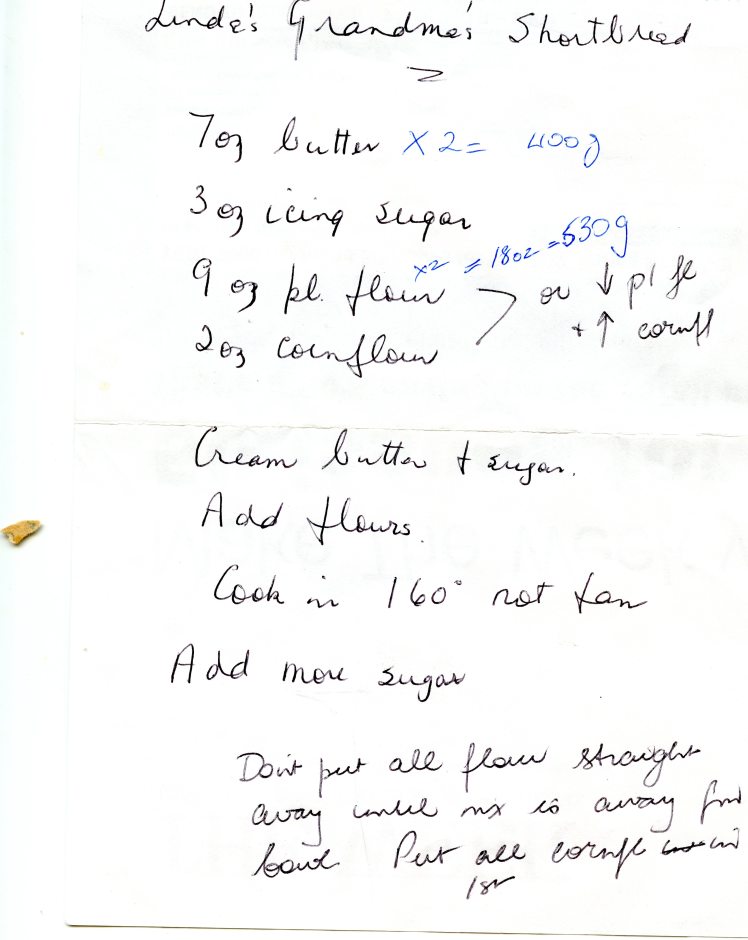 Linda's Grandma's Shortbread
7oz butter x2= 400g
3oz icing sugar
9oz pl. flour x2 = 18oz = 530g or ↓ pl fl
2oz cornflour + ↑ cornfl
Cream butter + sugar.
Add flours.
Cook in 160° not fan
Add more sugar
Don't put all flour straight
away until mix is away from
bowl Put all cornfl in
1st